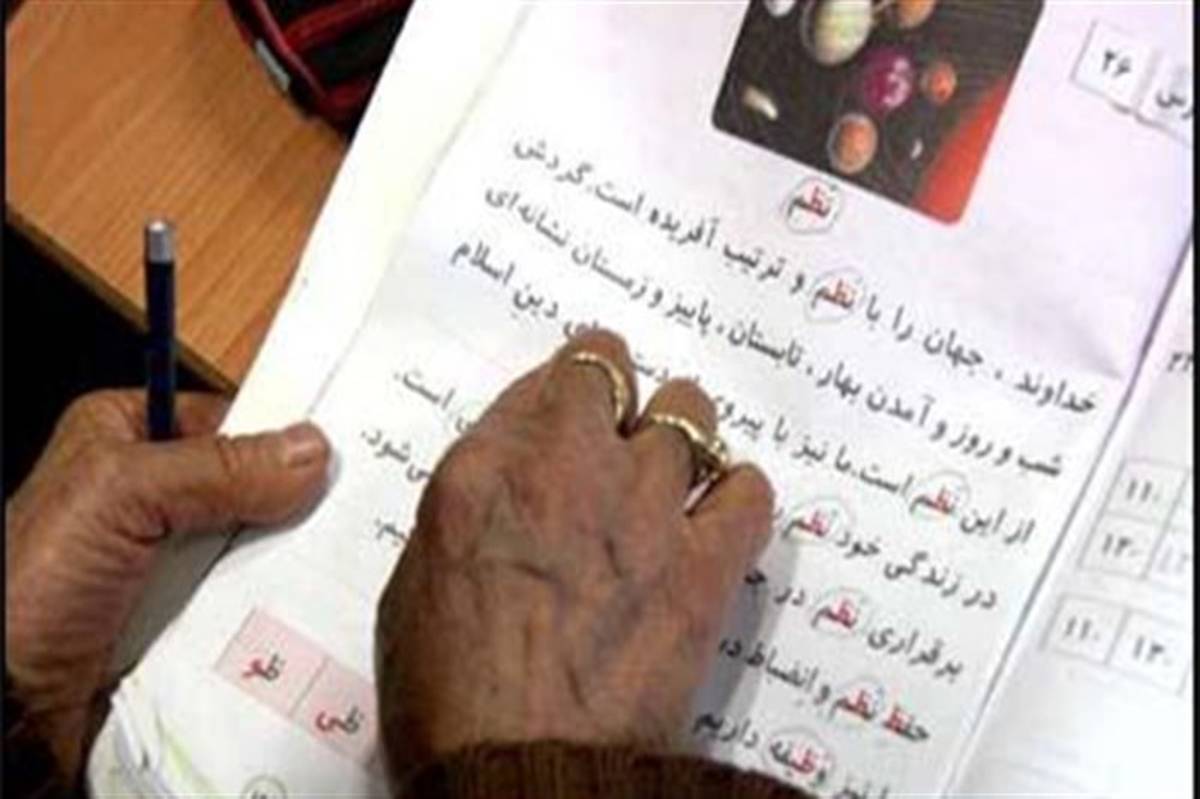 ۲۶
نظم
خداوند ، جهان را با نظم و ترتیب آفریده است. گردش
شب و روز و آمدن بهار ، تابستان ، پاییز و زمستان نشانه‌ای
از این نظم است. ما نیز با پیروی دین اسلام
در زندگی خود نظم است.
برقراری نظم در می‌شود.
حفظ نظم و انضباط در
نیز وظیفه داریم
ظی ظو
۱۱۰
۱۳۰
۱۱۰ ۱۳۰